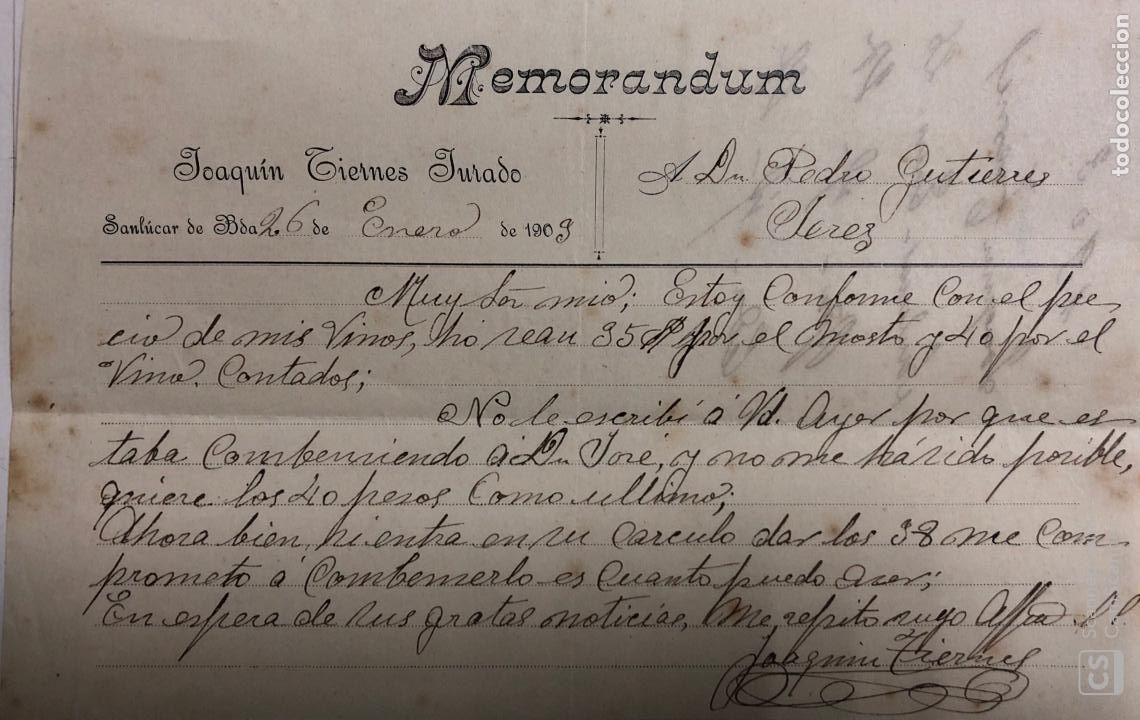 Memorandum
Joaquín Tiernes Jurado
Sanlúcar de Bda 26 de Enero de 1903
A Dn Pedro Gutierres
Jerez
Muy Sor mio; Estoy Conforme Con el pre-
cio de mis Vinos, ho sean 35 $ por el Mosto y 40 por el
Vino. Contados;
No le escribí á Vd. Ayer por que es-
taba Combenciendo á Dn José, y no me há sido posible,
quiere los 40 pesos Como ultimo;
Ahora bien, si entra en su Carculo dar los 38 me Com-
prometo á Combenserlo es Cuanto puedo aser;
En espera de sus gratas noticias, Me repito suyo Affmo
Joaquin Tiernes
todocoleccion
CS